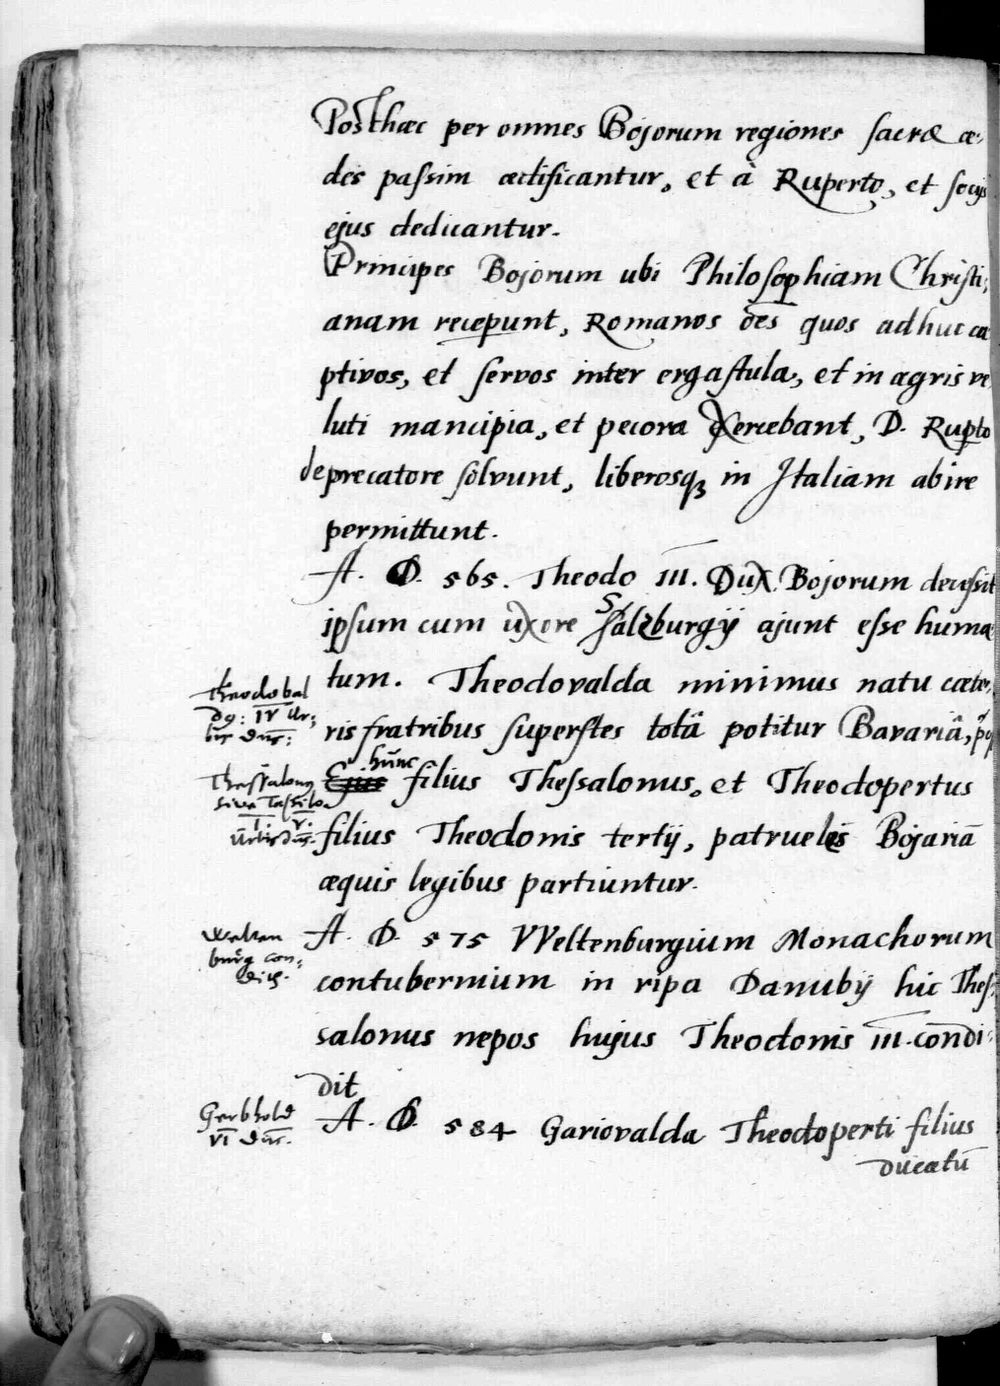 Posthæc per omnes Bojorum regiones sacræ æ-
des passim ædificantur, et à Ruperto, et socijs
ejus dedicantur.
Principes Bojorum ubi Philosophiam Christi-
anam recepunt, Romanos oēs quos adhuc ca
ptivos, et servos inter ergastula, et in agris ve
luti mancipia, et pecora exercebant, D. Rupto
deprecatore solvunt, liberosq in Italiam abire
permittunt.
A. D. 565. Theodo III. Dux Bojorum decessit
ipsum cum uxore Salzburgij ajunt esse huma
Theodobal
dg: IV Ur-
bis Dūs:
tum. Theodovalda minimus natu cæte-
ris fratribus superstes totâ potitur Bavariâ,
Thessalong
sive Tassilo
I. V.
Urbis Dūs.
Ejus hūnc filius Thessalonus, et Theodopertus
filius Theodonis tertij, patrueles Bojariā
æquis legibus partiuntur.
Welten
burg con-
dit.
A. D. 575 Weltenburgium Monachorum
contubernium in ripa Danubij hic Thes-
salonus nepos hujus Theodonis III. condi-
dit
Gerbhold
VI Dūs.
A. D. 584 Gariovalda Theodoperti filius
ducatū